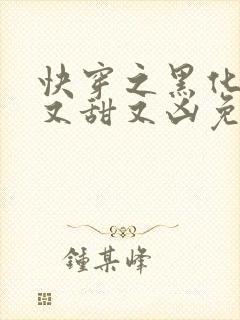 快穿之黑化
又甜又凶免
鍾某峰